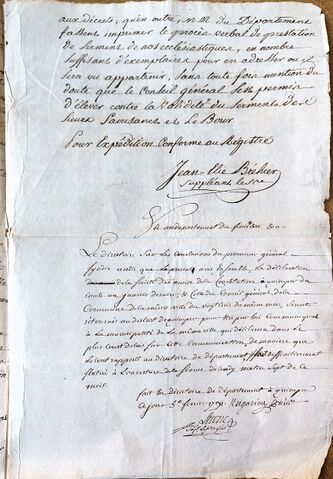 aux décrets, qu'en outre, MM du Département
fassent imprimer le procès verbal de prestation
de Serment de nos ecclésiastiques, en nombre
suffisant d'exemplaires pour en adresser ou il
sera vu appartenir, sans toute fois mention du
doute que le Conseil général s'est permis
d'élever contre la Validité du Serments des
sieurs et Le Bour.
Pour Expédition Conforme au Registre
Jean-Elie Bréhier
Suppléant le sre
Vu au département du finistère &a
Le directoire Sur les Conclusions du procureur général
syndic arrête que la déclaration
de la Société des amis de la Constitution de quimper du
janvier dernier, & Celle du Conseil général de la
Commune de la même ville du vingt six du même mois, Seront
retournés au district de quimper pour être par lui Communiqués
à la municipalité de la même ville qui délibérera dans le
plus Court délai Sur cette Communication, de manière que
le tout rapporté au directoire de département
Statué à l'ouverture de la Séance de lundy matin Sept de ce
mois.
fait En directoire de département à quimper
Ce jour 5e février 1791.